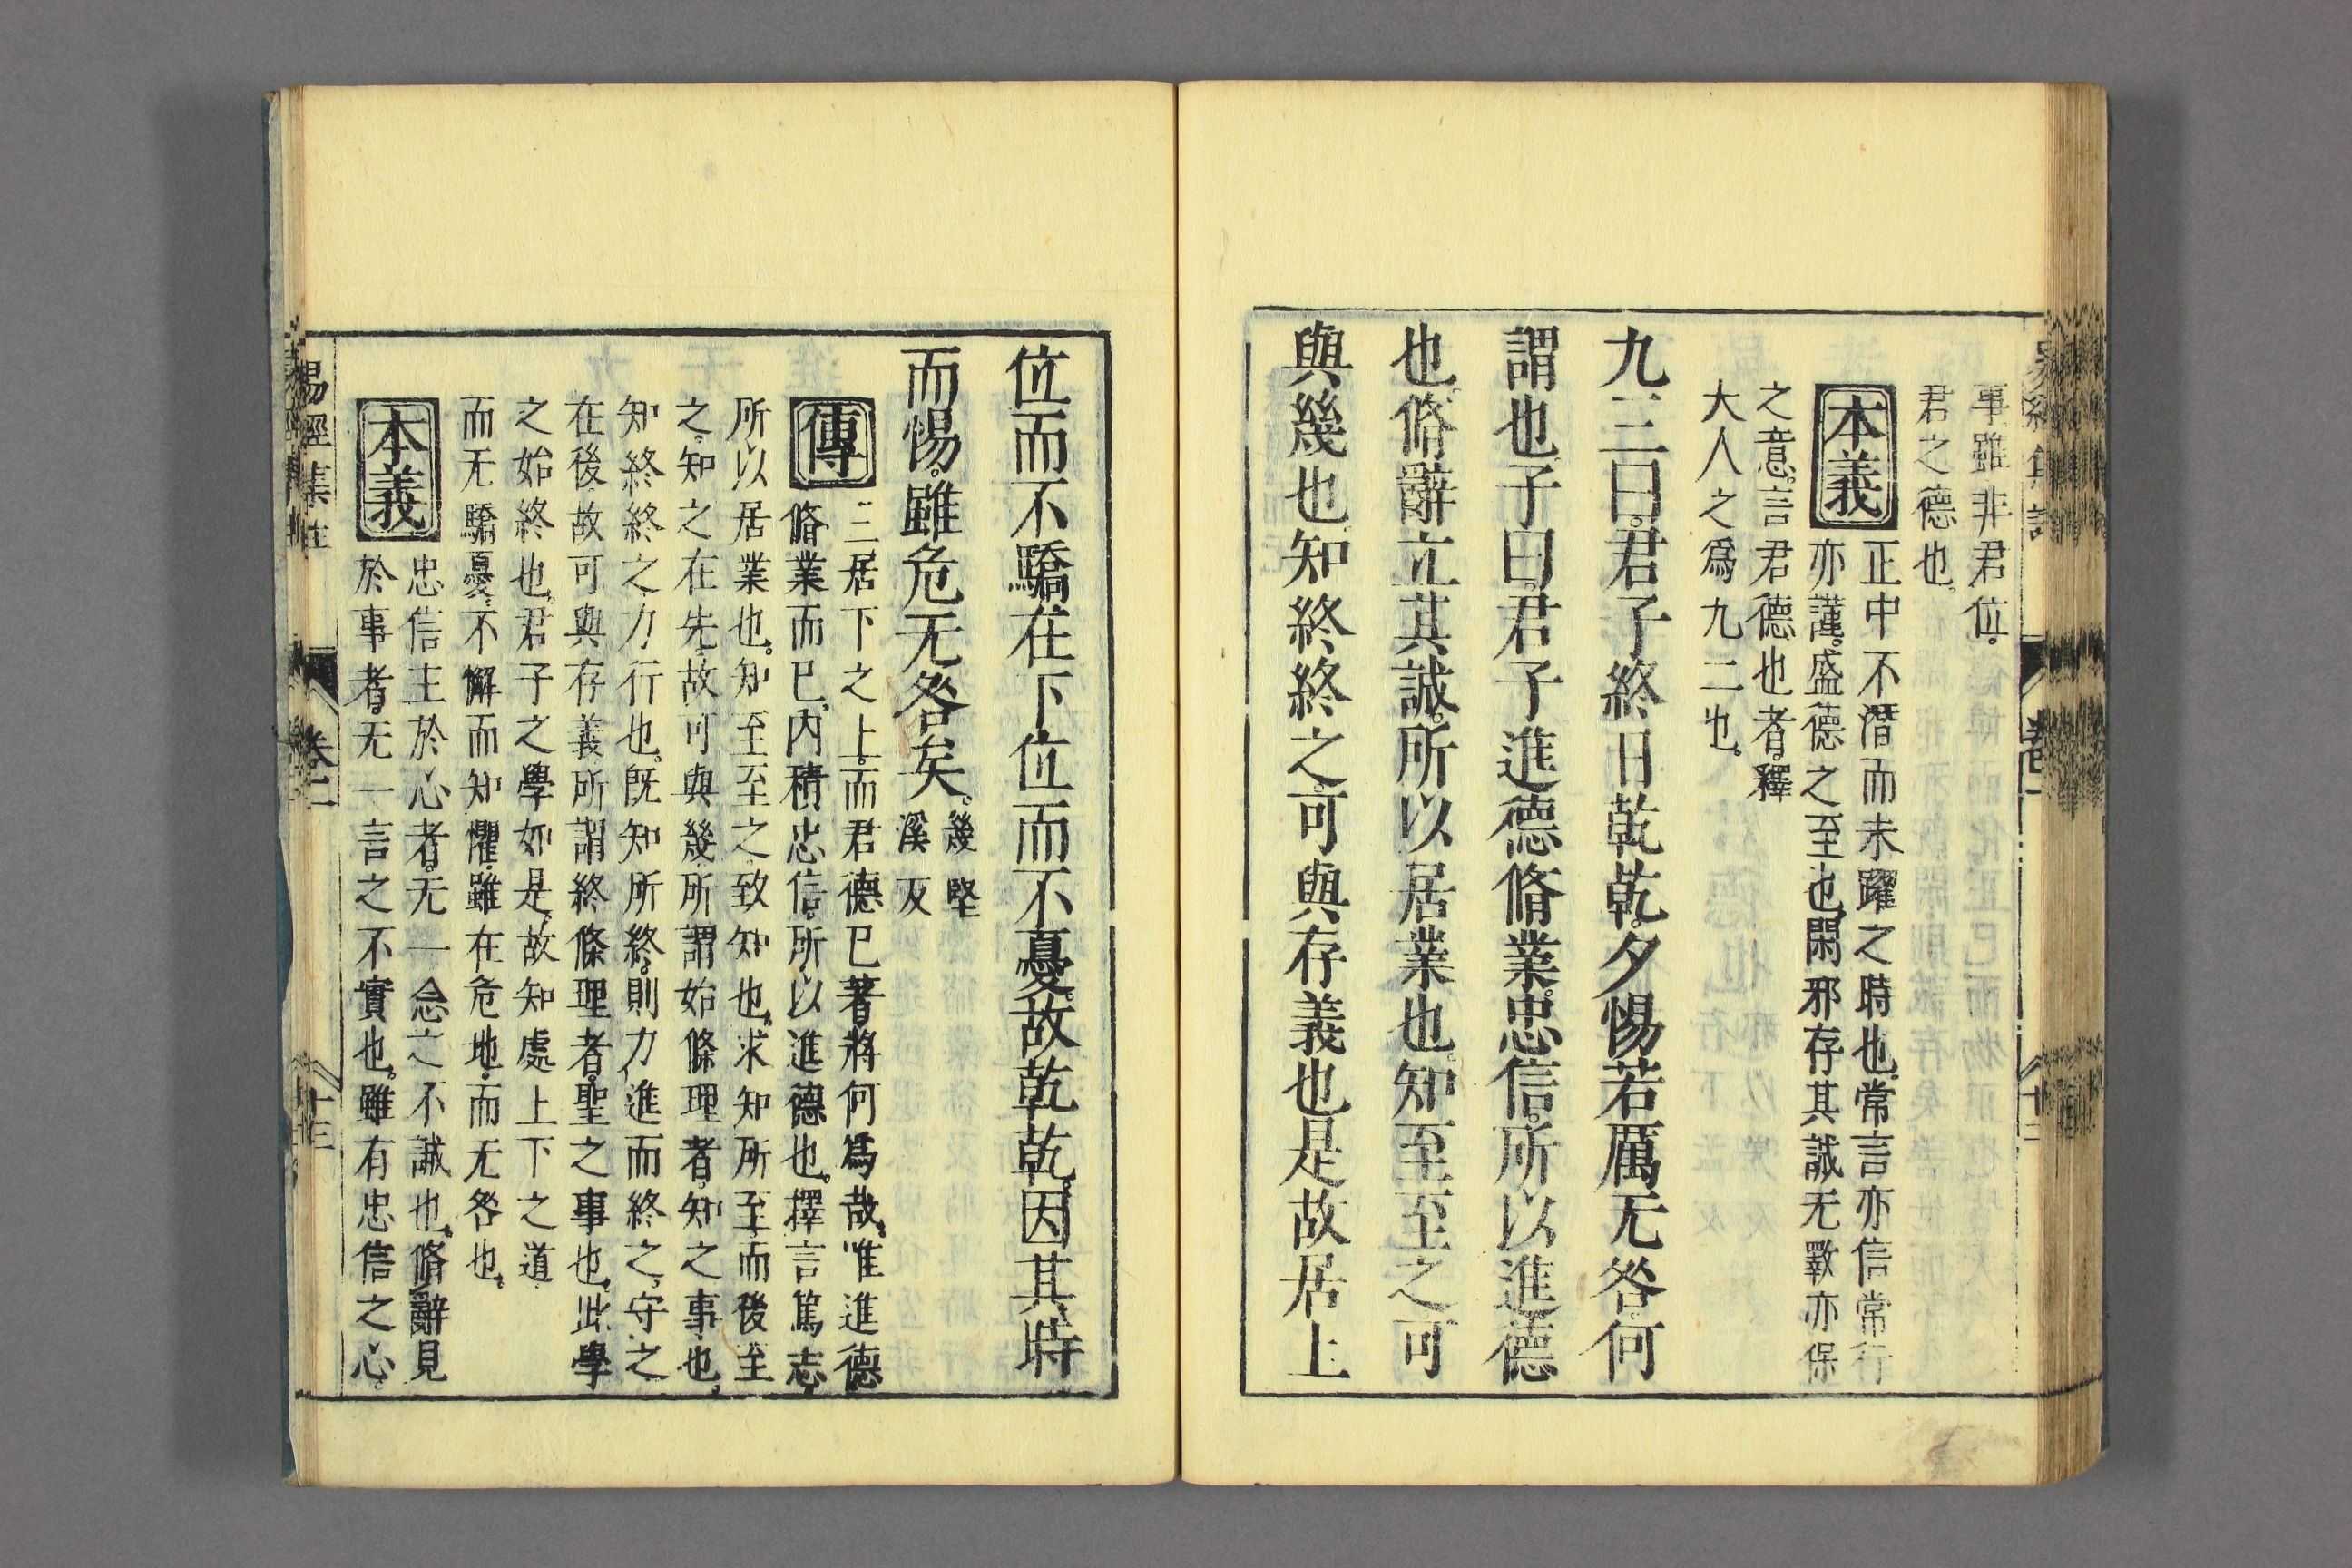 事雖非君位。
君之德也。
本義
正中不潛而未躍之時也。常言亦信常行
亦謹。盛德之至也。閑邪存其誠无斁亦保
之意。言君德也者。釋
大人之爲九二也。
九三曰。君子終日乾乾。夕惕若厲无咎。何
謂也。子曰。君子進德脩業。忠信。所以進德
也。脩辭立其誠。所以居業也。知至至之可
與幾也。知終終之。可與存義也是故居上
位而不驕在下位而不憂。故乾乾。因其時
而惕。雖危无咎矣。
幾堅
溪反
傳
三居下之上。而君德已著將何爲哉。唯進德
脩業而已。内積忠信。所以進德也。擇言篤志
所以居業也。知至至之致知也。求知所至而後至
之。知之在先故可與幾。所謂始條理者。知之事也。
知終終之力行也。既知所終。則力進而終之。守之
在後。故可與存義。所謂終條理者。聖之事也。此學
之始終也。君子之學如是。故知處上下之道
而无驕憂。不懈而知懼。雖在危地。而无咎也。
本義
忠信主於心者。无一念之不誠也。脩辭見
於事者。无一言之不實也。雖有忠信之心。
易經集註
卷一
十三